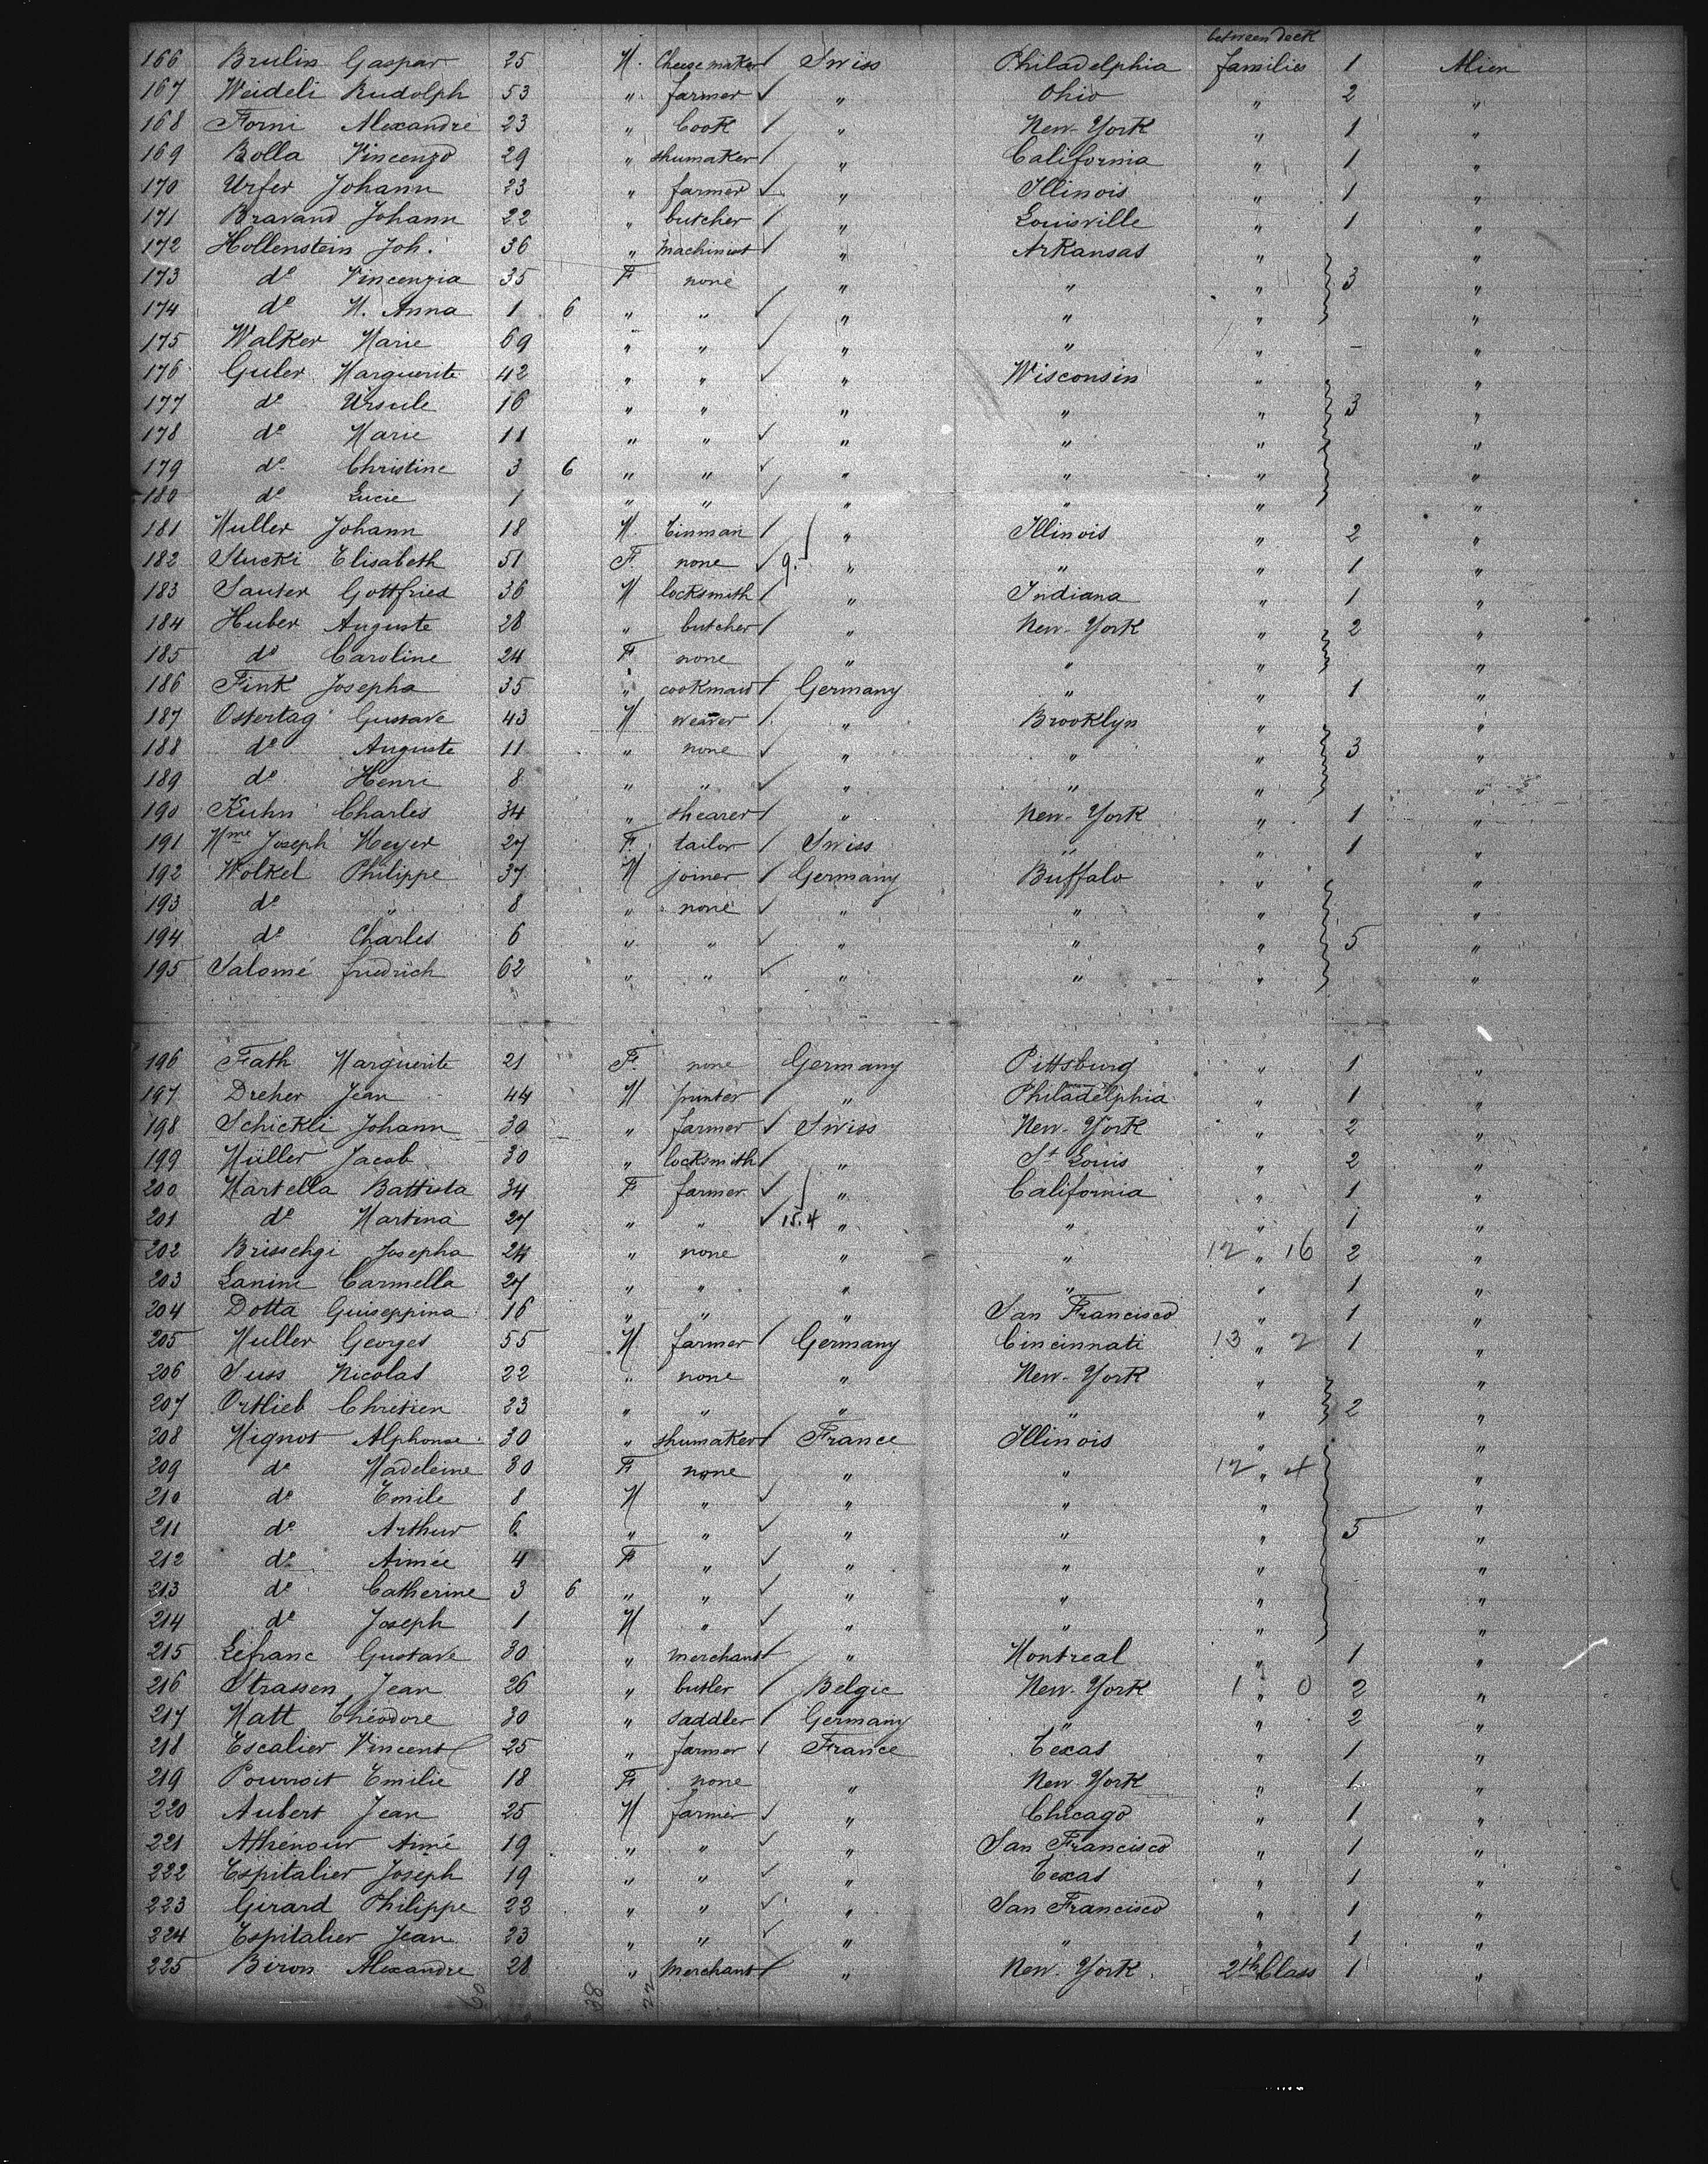 between deck
166 Brulin Gaspar 25 M. Cheesemaker / Swiss Philadelphia families 1 Alien
167 Weideli Rudolph 53 " farmer ✓ " Ohio " 2 "
168 Forni Alexandre 23 " Cook / " New-York " 1 "
169 Bolla Vincenzo 29 " shumaker / " California " 1 "
170 Urfer Johann 23 " farmer ✓ " Illinois " 1 "
171 Bravand Johann 22 " butcher / " Louisville " 1 "
172 Hollenstein Joh. 36 " Machinist / " Arkansas " "
173 do Vincenzia 35 F none " " " 3 "
174 do M. Anna 1 6 " " ✓ " " " "
175 Walker Marie 69 " " ✓ " " " - "
176 Guler Marguerite 42 " " ✓ " Wisconsin " "
177 do Ursule 16 " " " " " 3 "
178 do Marie 11 " " ✓ " " " "
179 do Christine 3 6 " " ✓ " " " "
180 do Lucie 1 " " ✓ " " " "
181 Muller Johann 18 M. tinman / " Illinois " 2 "
182 Stucki Elisabeth 51 F. none ✓ 9. " " " 1 "
183 Sauter Gottfried 36 M locksmith / " Indiana " 1 "
184 Huber Auguste 28 " butcher / " New-York " 2 "
185 do Caroline 24 F none " " " "
186 Fink Josepha 35 " cookmaid / Germany " " 1 "
187 Ostertag Gustave 43 M weaver / " Brooklyn " "
188 do Auguste 11 " none ✓ " " " 3 "
189 do Henri 8 " " ✓ " " " "
190 Kuhn Charles 34 " shearer / " New-York " 1 "
191 Mme Joseph Meyer 27 F. tailor / Swiss " " 1 "
192 Wolkel Philippe 37 M joiner / Germany Buffalo " "
193 do " 8 " none ✓ " " " "
194 do Charles 6 " " ✓ " " " 5 "
195 Salomé friedrich 62 " " ✓ " " " "
196 Fath Marguerite 21 F. none Germany Pittsburg " 1 "
197 Dreher Jean 44 M printer / " Philadelphia " 1 "
198 Schickli Johann 30 " farmer ✓ Swiss New-York " 2 "
199 Müller Jacob 30 " locksmith / " St Louis " 2 "
200 Martella Battista 34 F farmer ✓ " California " 1 "
201 do Martina 27 " " ✓ 15.4 " " " 1 "
202 Brisschgi Josepha 24 " none " " 12 " 16 2 "
203 Lanini Carmella 27 " " " " " 1 "
204 Dotta Guiseppina 16 " " " San Francisco " 1 "
205 Muller Georges 55 M farmer / Germany Cincinnati 13 " 2 1 "
206 Suss Nicolas 22 " none " New-York " "
207 Ortlieb Chretien 23 " " " " " 2 "
208 Mignot Alphonse 30 " shumaker / France Illinois " "
209 do Madeleine 30 F none " " 12 " 4 "
210 do Emile 8 M " ✓ " " " "
211 do Arthur 6 " " ✓ " " " 5 "
212 do Aimée 4 F " ✓ " " " "
213 do Catherine 3 6 " " ✓ " " " "
214 do Joseph 1 M " ✓ " " " "
215 Lefranc Gustave 30 " merchant / " Montreal " 1 "
216 Strassen Jean 26 " butler / Belgic New-York 1 " 0 2 "
217 Matt Théodore 30 " saddler / Germany " " 2 "
218 Escalier Vincent 25 " farmer ✓ France Texas " 1 "
219 Pourroit Emilie 18 F none " New-York " 1 "
220 Aubert Jean 25 M farmer ✓ " Chicago " 1 "
221 Athénour Aimé 19 " " ✓ " San Francisco " 1 "
222 Espitalier Joseph 19 " " ✓ " Texas " 1 "
223 Girard Philippe 22 " " ✓ " San Francisco " 1 "
224 Espitalier Jean 23 " " ✓ " " " 1 "
225 Biron Alexandre 28 " Merchant / " New-York 2th Class 1 "
60 38 22